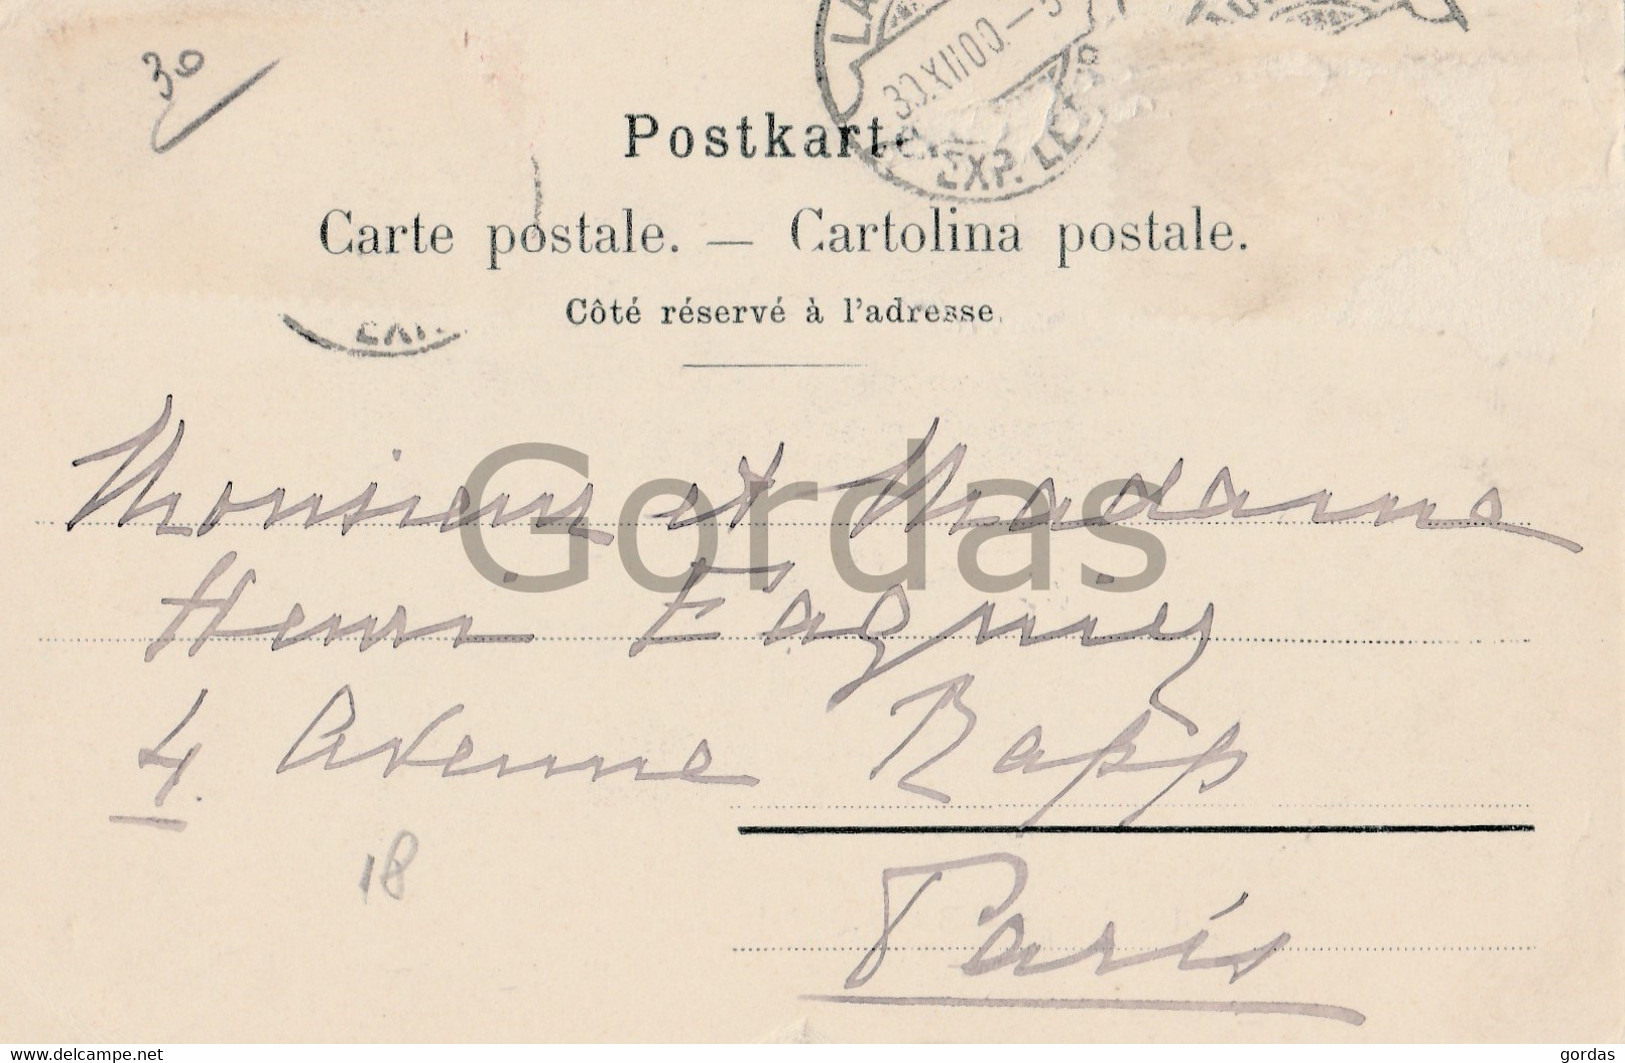 30
30.XII00.-5
EXP. LETT
Postkarte.
Carte postale. — Cartolina postale.
Côté réservé à l'adresse.
EXP.
Monsieur et Madame
Henri Fagniez
4. Avenue Rapp
18
Paris
Gordas
www.delcampe.net
gordas